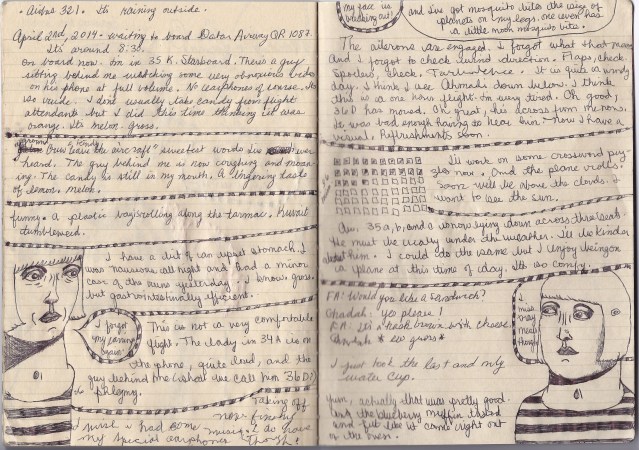 . Airbus 321. It's raining outside.
April 2nd, 2014 - waiting to board Qatar Airway QR 1087.
It's around 8:30.
On board now. On in 35 K. Starboard. There's a guy
sitting behind me watching some very obnoxious video
on his phone at full volume. No earphones of course. It's
so rude. I don't usually take candy from flight
attendants but I did this time thinking it was
orange. It's melon. Gross.
"Ground crew leave the aircraft" sweetest words I've ever
heard. The guy behind me is now coughing and moan-
ing. The candy is still in my mouth. A lingering taste
of lemon melon.
funny. A plastic bag scrolling along the tarmac. Kuwait
tumbleweed.
I have a bit of an upset stomach. I
was nauseous all night and had a minor
case of the runs yesterday. I know, gross.
but gastrointestinally efficient.
I forgot
my earring
again.
This is not a very comfortable
flight. The lady in 34A is on
the phone, quite loud, and the
guy behind me (what we call him 36D?)
is phlegmy.
Taking off
now finally
I wish I had some music. I do have
my special earphones though!
my face is
breaking out!
and I've got mosquito bites the size of
planets on my legs. one even has
a little moon mosquito bite.
The ailerons are engaged. I forgot what that means
And I forgot to check wind direction. Flaps, check.
Spoilers, check. Turbulence. It is quite a windy
day. I think I see Ahmadi down below. I think
this is a one hour flight. I'm very tired. Oh good,
36D has moved. Oh great, he's across from me now.
It was bad enough having to hear him. Now I have a
visual. Refreshments soon.
I'll work on some crossword puz-
zles now. And the plane rocks.
Soon we'll be above the clouds. I
want to see the sun.
Aw. 35a, b, and c is now lying down across the seats.
He must be really under the weather. I'll be kinder
about him. I could do the same but I enjoy being on
a plane at this time of day. It's so comfy.
FA: Would you like a sandwich?
Ghadah: Yes please!
FA: It's a brown with cheese.
Ghadah * ew gross *
I just took the last and only
water cup.
Yum, actually that was pretty good.
and the blueberry muffin tasted
and felt like it came right out
of the oven.
I
miss
my
meals
though